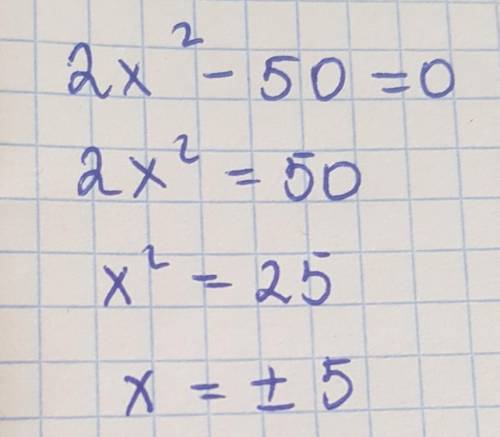 2x² - 50 = 0
2x² = 50
x² = 25
x = ± 5